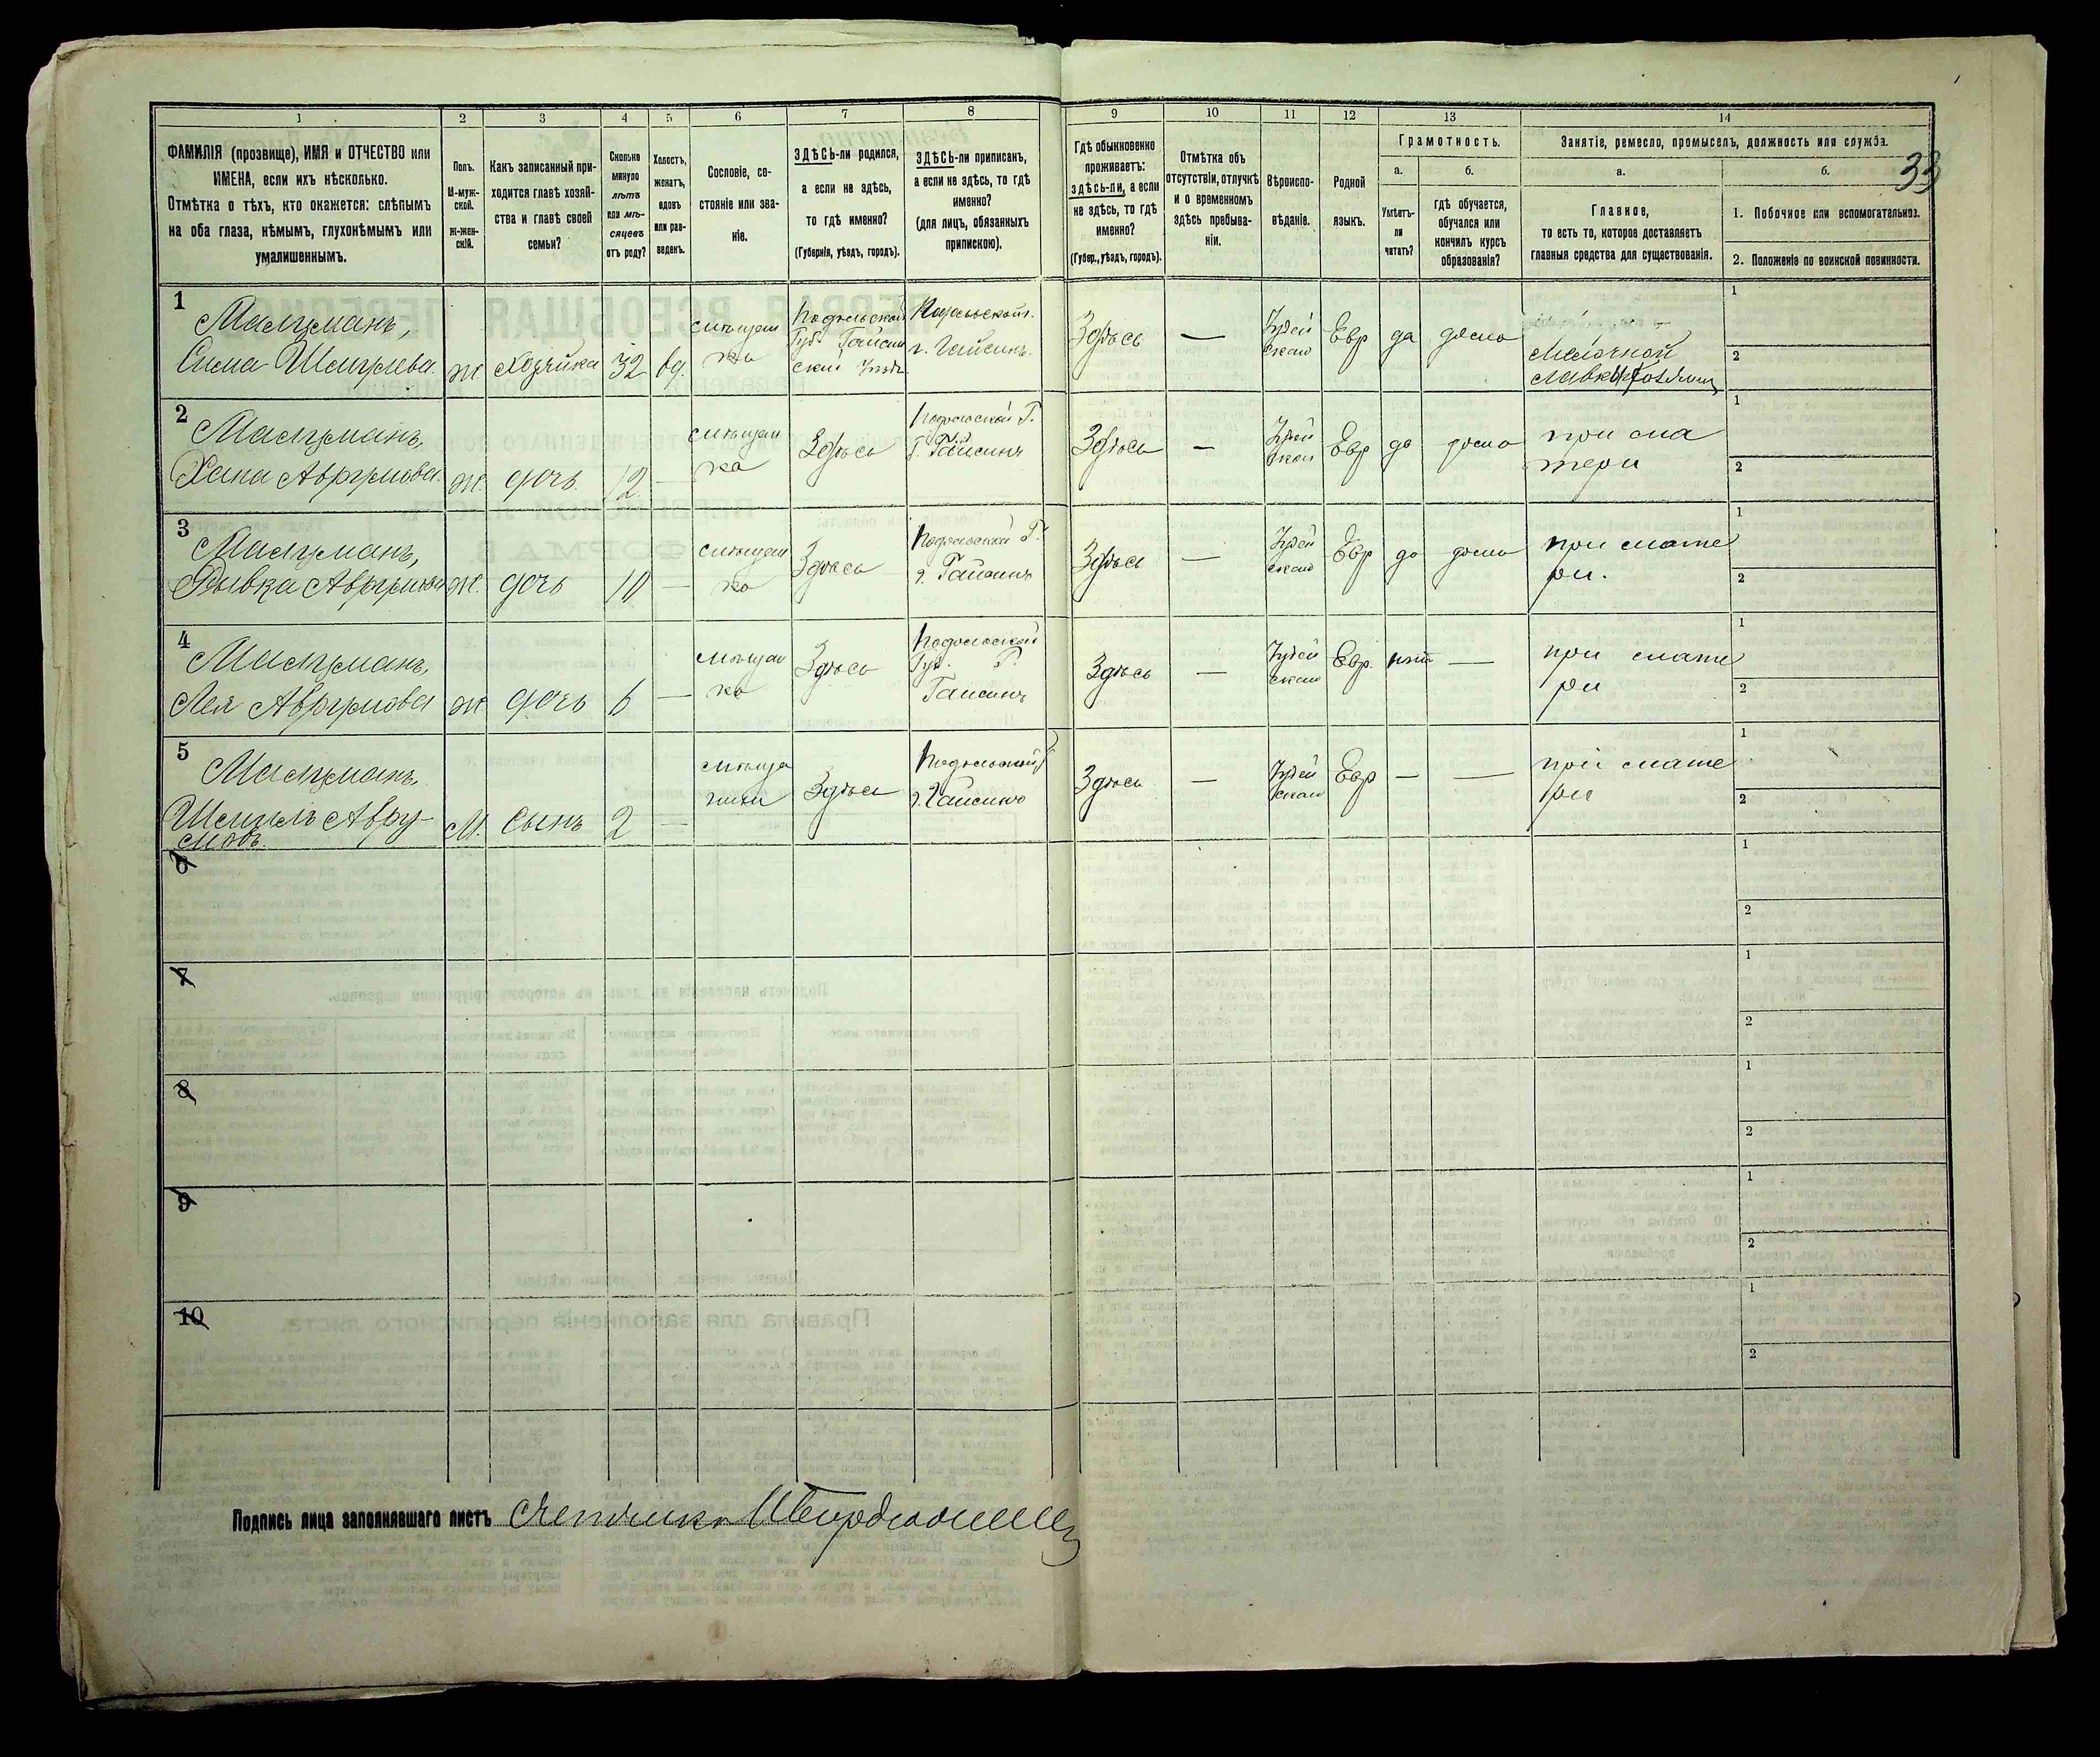 33
1 2 3 4 5 6 7 8 9 10 11 12 13 14
ФАМИЛІЯ (прозвище), ИМЯ и ОТЧЕСТВО или
ИМЕНА, если ихъ нѣсколько.
Отмѣтка о тѣхъ, кто окажется: слѣпымъ
на оба глаза, нѣмымъ, глухонѣмымъ или
умалишеннымъ.
Полъ.
М-муж-
ской.
Ж-жен-
скій.
Какъ записанный при-
ходится главѣ хозяй-
ства и главѣ своей
семьи?
Сколько
минуло
лѣтъ
или мѣ-
сяцевъ
отъ роду?
Холостъ,
женатъ,
вдовъ
или раз-
веденъ.
Сословіе, со-
стояніе или зва-
ніе.
ЗДѢСЬ-ли родился,
а если не здѣсь,
то гдѣ именно?
(Губернія, уѣздъ, городъ).
ЗДѢСЬ-ли приписанъ,
а если не здѣсь, то гдѣ
именно?
(для лицъ, обязанныхъ
припискою).
Гдѣ обыкновенно
проживаетъ:
здѣсь-ли, а если
не здѣсь, то гдѣ
именно?
(Губер., уѣздъ, городъ).
Отмѣтка объ
отсутствіи, отлучкѣ
и о временномъ
здѣсь пребыва-
ніи.
Вѣроиспо-
вѣданіе.
Родной
языкъ.
Грамотность.
а.
Умѣетъ-
ли
читать?
б.
гдѣ обучается,
обучался или
кончилъ курсъ
образованія?
Занятіе, ремесло, промыселъ, должность или служба.
а.
Главное,
то есть то, которое доставляетъ
главныя средства для существованія.
б.
1. Побочное или вспомогательное.
2. Положеніе по воинской повинности.
1
Малцманъ,
Ж. Хозяйка 32 вд.
мѣщан
ка
Подольской
Губ. Гайсин
г. Гайсинъ.
Здѣсь — Іудей
ское
Евр да дома
Мелочной
лавки
1
2
2
Малцманъ,
Хана Аврумова. Ж. дочь. 12 —
мѣщан
ка
Здѣсь
Подольской Г.
г. Гайсинъ
Здѣсь — Іудей
ское
Евр да дома
при ма
тери
1
2
3
Малцманъ,
Рывка Ж. дочь 10 —
мѣщан
ка
Здѣсь
Подольской Г.
г. Гайсинъ
Здѣсь — Іудей
ское
Евр да дома
при мате
ри.
1
2
4
Малцманъ,
Лея Аврумова Ж дочь 6 —
мѣщан
ка
Здѣсь
Подольской
Губ. Г.
Гайсинъ
Здѣсь — Іудей
ское
Евр. нѣтъ —
при мате
ри
1
2
5
Малцманъ,
Авру-
мовъ. М. сынъ 2 —
мѣща
нинъ
Здѣсь
Подольской Г
г. Гайсинъ
Здѣсь — Іудей
ское
Евр — —
при мате
ри
1
2
6
1
2
7
1
2
8
1
2
9
1
2
10
1
2
Подпись лица заполнявшаго листъ